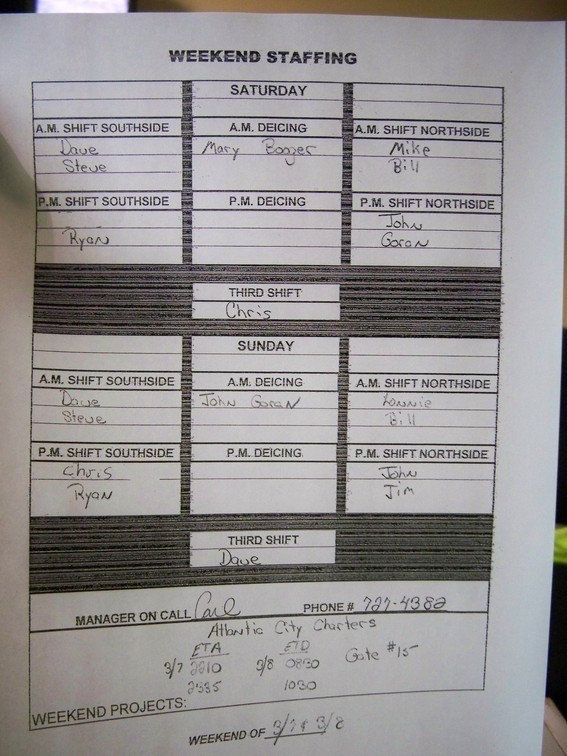 WEEKEND STAFFING
SATURDAY
A.M. SHIFT SOUTHSIDE A.M. DEICING A.M. SHIFT NORTHSIDE
Dave Mary Booger Mike
Steve Bill
P.M. SHIFT SOUTHSIDE P.M. DEICING P.M. SHIFT NORTHSIDE
John
Ryan Goran
THIRD SHIFT
Chris
SUNDAY
A.M. SHIFT SOUTHSIDE A.M. DEICING A.M. SHIFT NORTHSIDE
Dave John Goran Lonnie
Steve Bill
P.M. SHIFT SOUTHSIDE P.M. DEICING P.M. SHIFT NORTHSIDE
Chris John
Ryan Jim
THIRD SHIFT
Dave
MANAGER ON CALL Carl PHONE # 727-4382
Atlantic City Charters
ETA ETD
3/7 2210 3/8 0830 Gate #15
2335 1030
WEEKEND PROJECTS:
WEEKEND OF 3/7 & 3/8